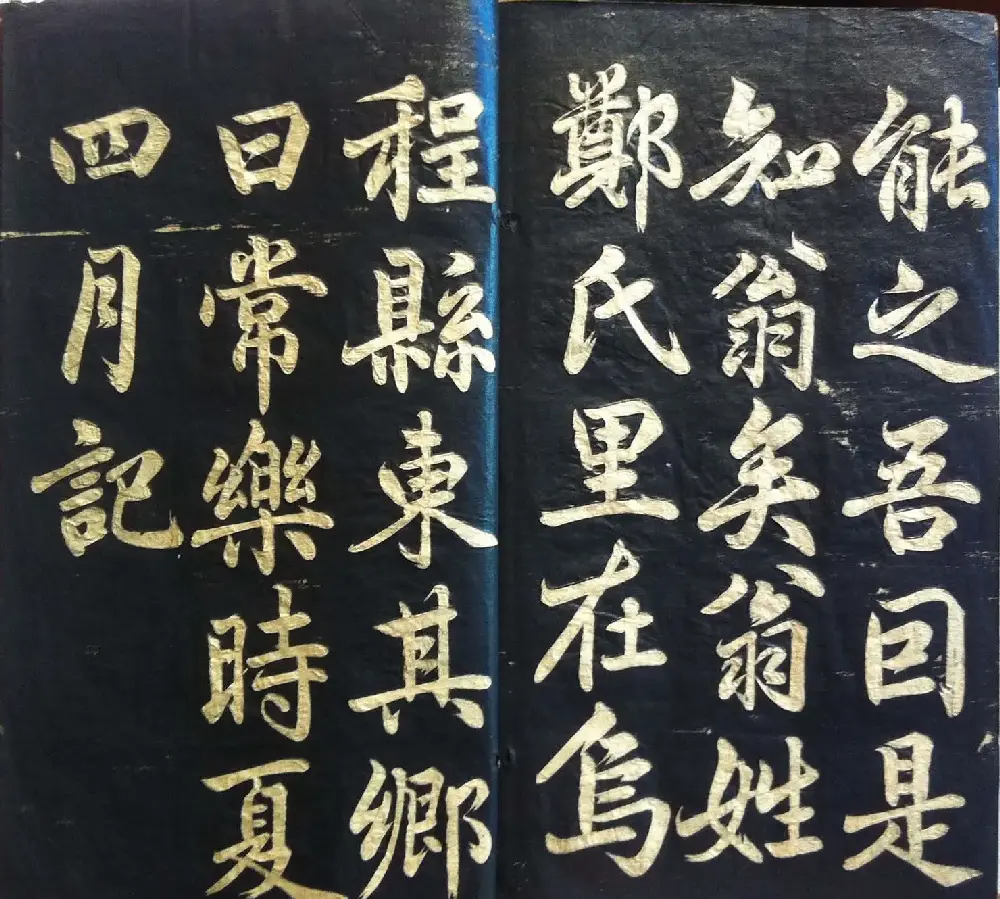 能之吾回是
知翁矣翁姓
鄭氏里在烏
程縣東其鄉
曰常樂時夏
四月記